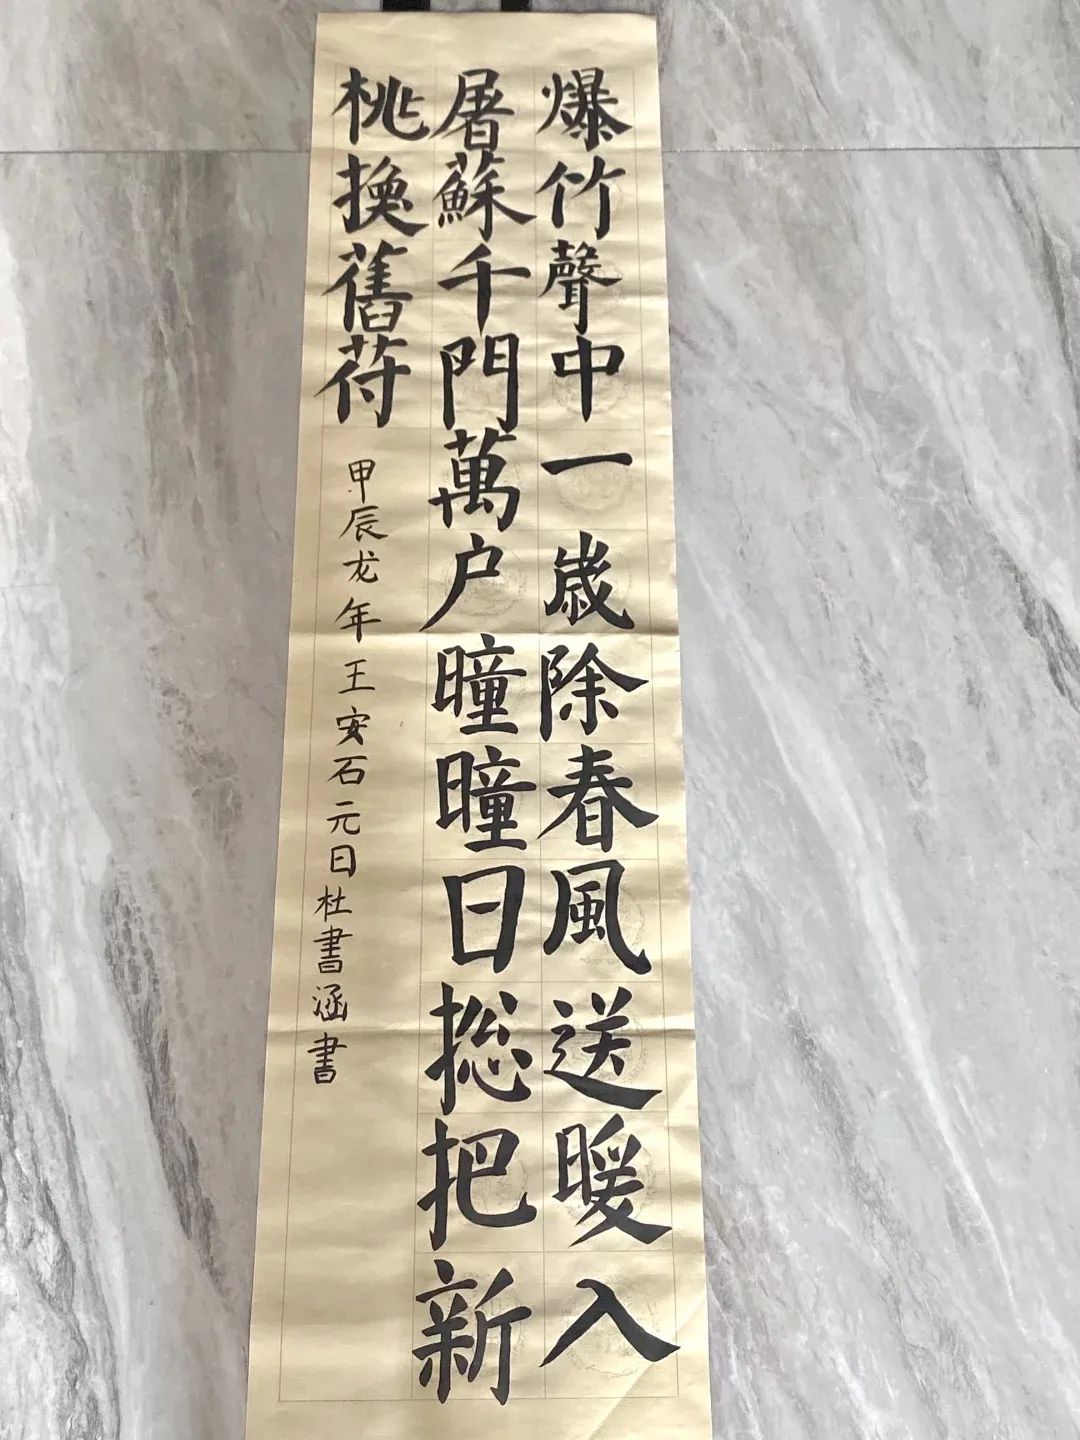 爆竹聲中一歲除春風送暖入
屠蘇千門萬户曈曈日捴把新
桃換舊苻
甲辰龙年王安石元日杜書涵書